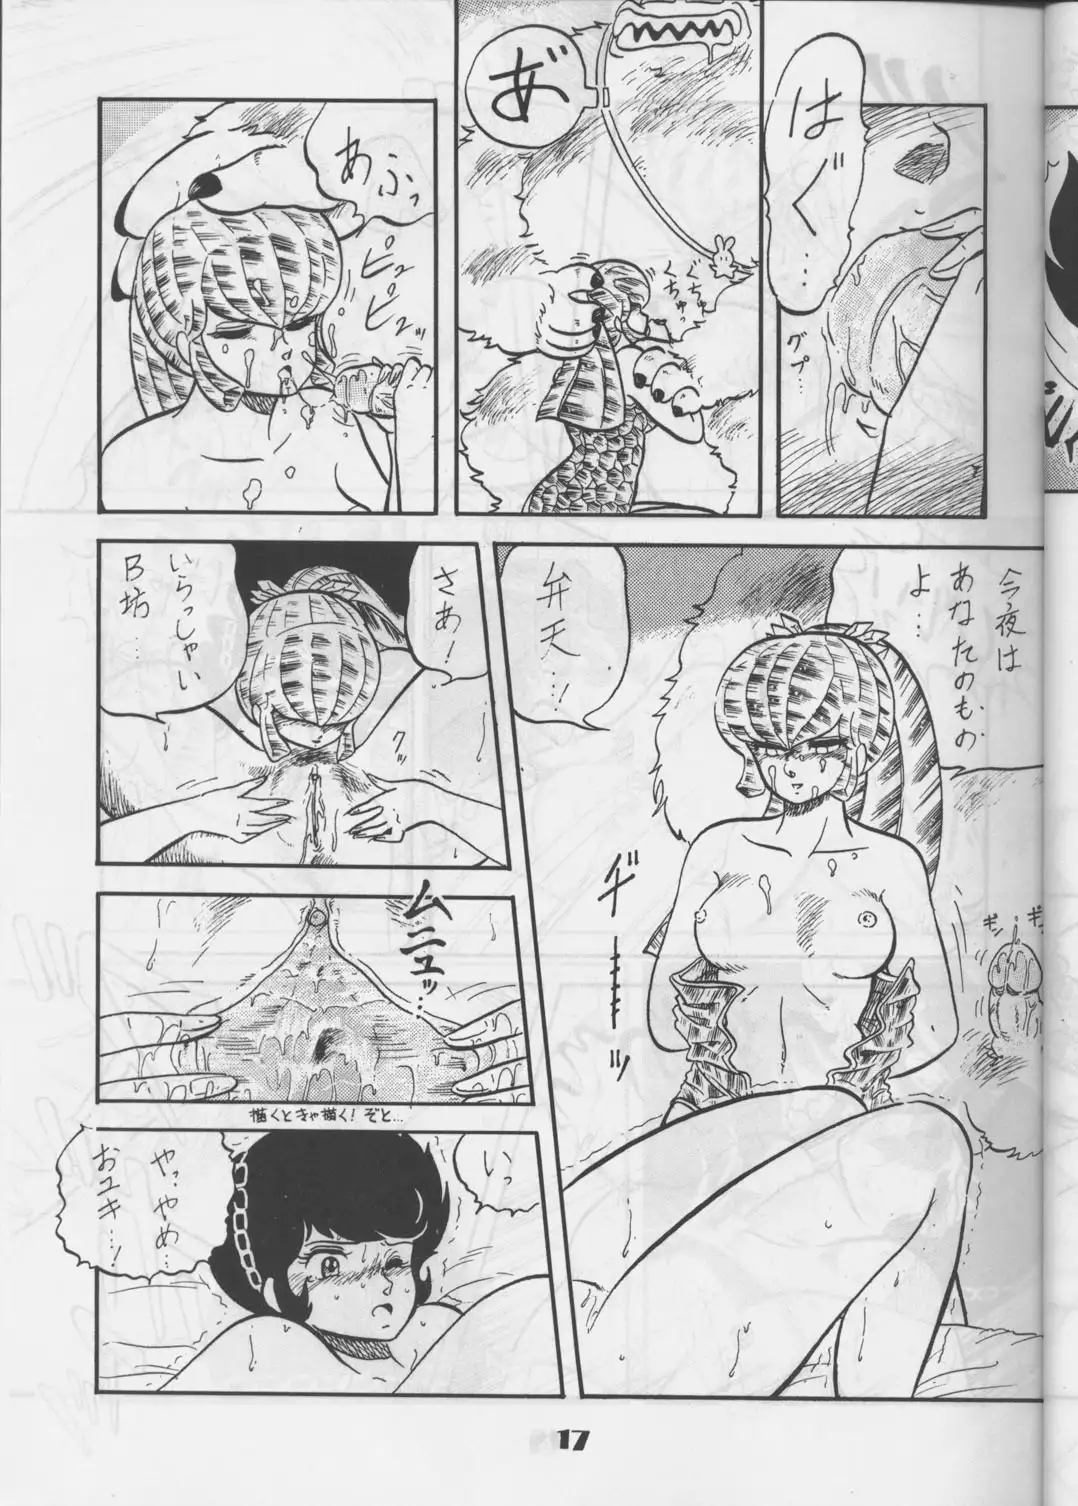 はぐ…
グプ…
あ゙
くちゅ
くちゅっ
あふっ
ピュ
ピュッ
今夜は
あなたのもの
よ…
弁天…!
ギシ
ギシ
さあ!
いらっしゃい
B坊…
クッ
ムニュッ…
描くときゃ描く!ぞと…
いっ
やっやめ…
おユキ…!
17